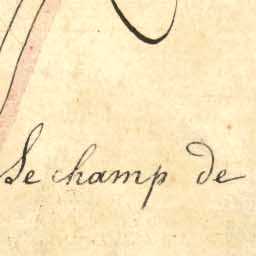 Le champ de